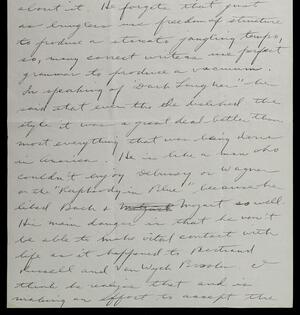 about it. He forgets that just
as bunglers use freedom of structure
to produce a staccato jangling tempo,
so, many correct writers use perfect
grammar to produce a vacuum.
In speaking of "Dark Laughter" he
said that even tho he disliked the
style it was a great deal better than
most everything that was being done
in America. He is like a man who
couldn't enjoy Debussy or Wagner
or the "Rhapsody in Blue" because he
liked Bach + Mozart so well.
His main danger is that he won't
be able to make vital contact with
life as it happened to Bertrand
Russell and Van Wyck Brooks. I
think he realizes that and is
making an effort to accept the